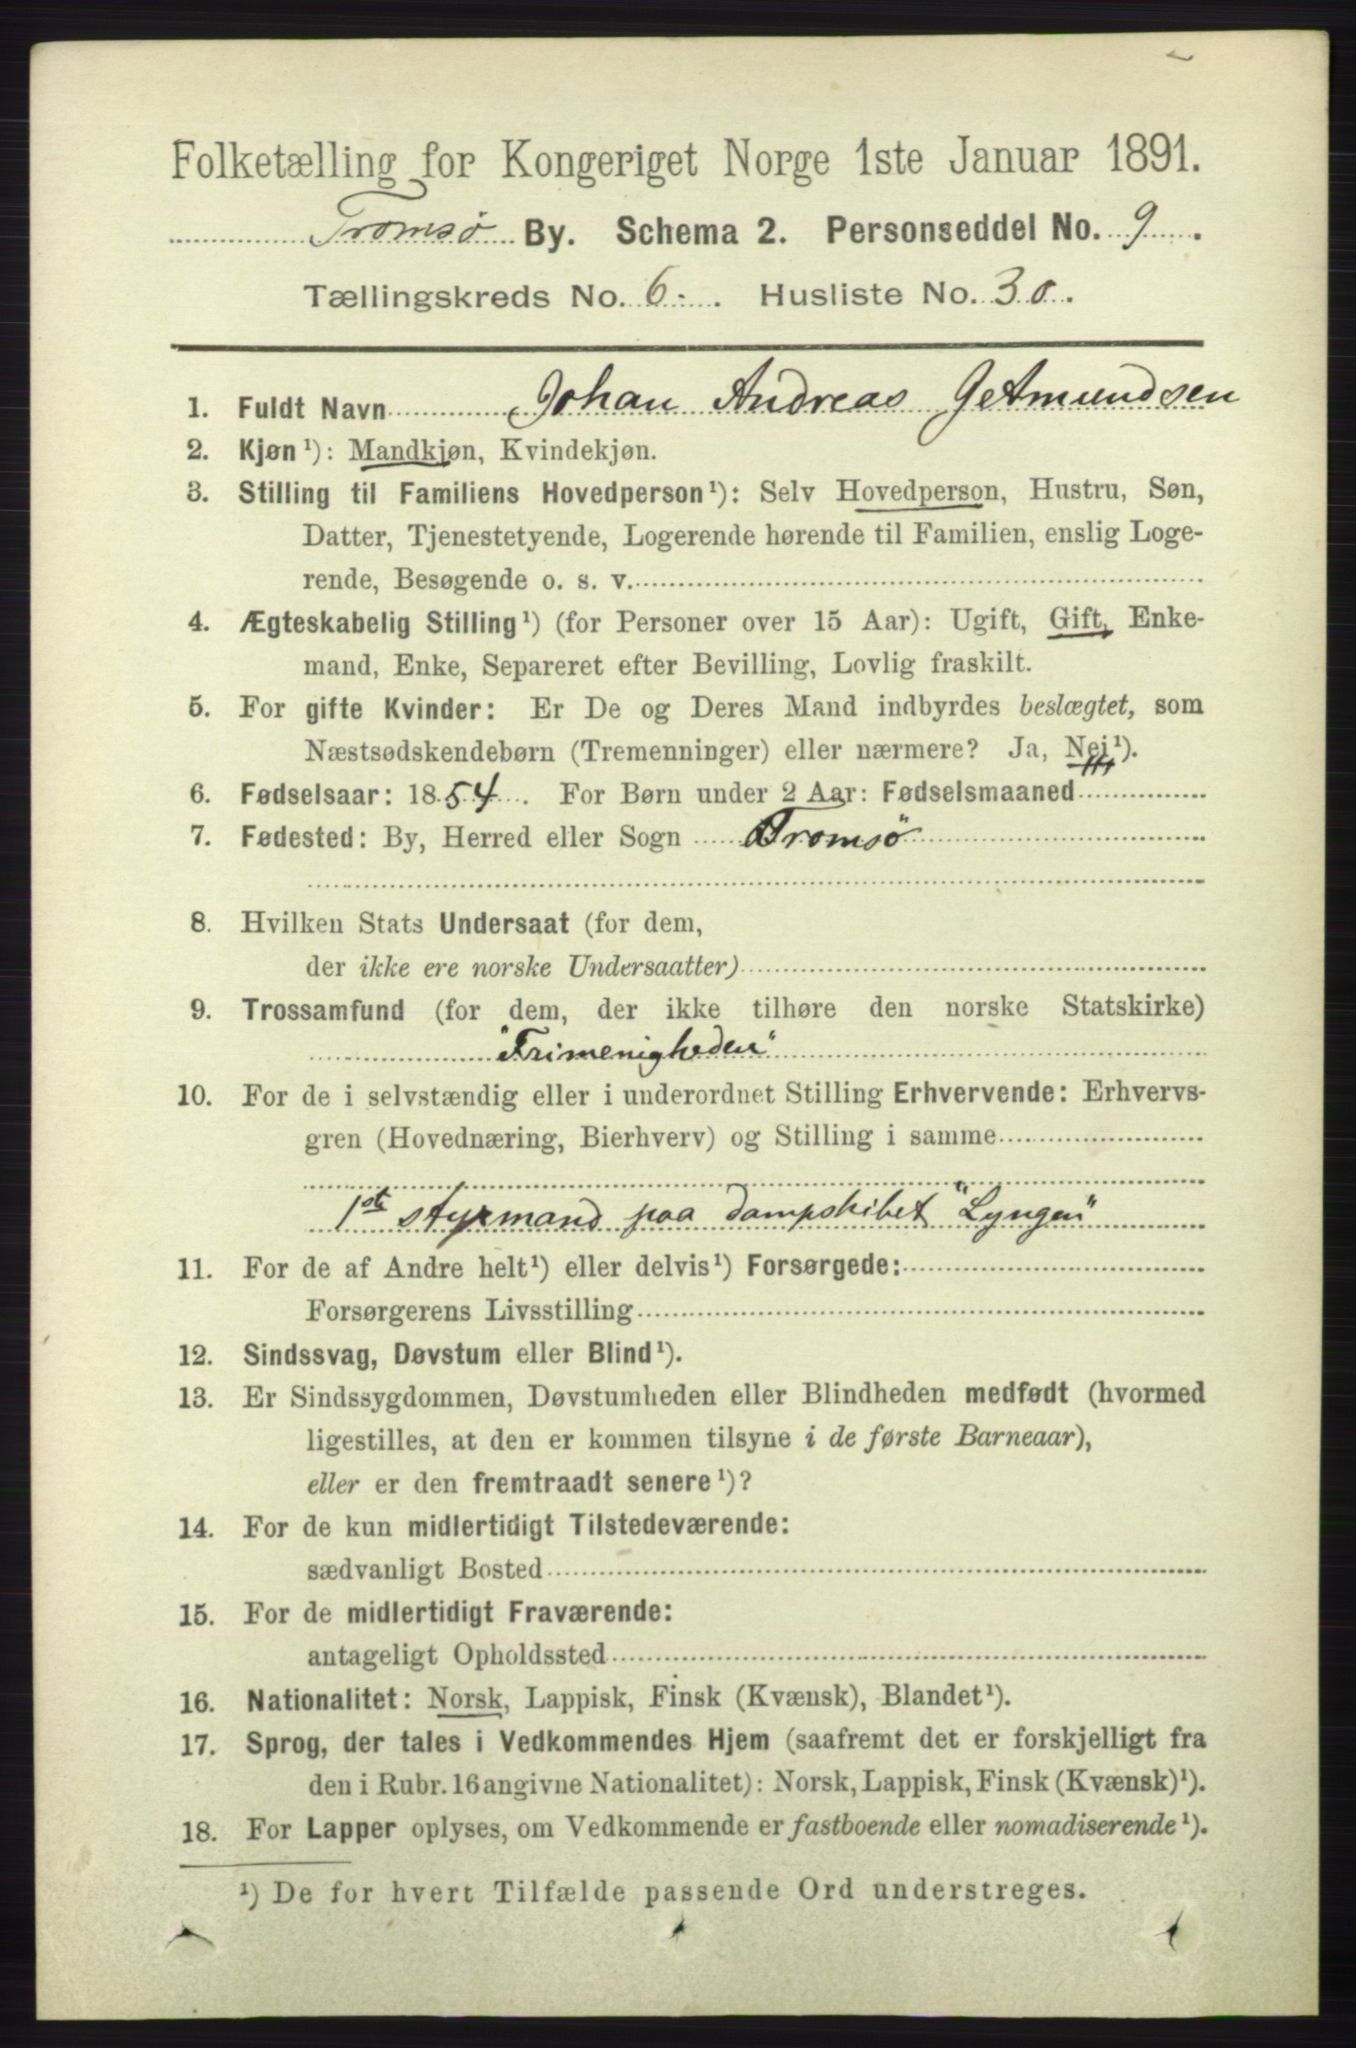 Folketælling for Kongeriget Norge 1ste Januar 1891.
Tromsø By. Schema 2. Personseddel No. 9.
Tællingskreds No. 6. Husliste No. 30.
1. Fuldt Navn Johan Andreas Amundsen
2. Kjøn¹): Mandkjøn, Kvindekjøn.
3. Stilling til Familiens Hovedperson¹): Selv Hovedperson, Hustru, Søn,
Datter, Tjenestetyende, Logerende hørende til Familien, enslig Loge-
rende, Besøgende o. s. v.
4. Ægteskabelig Stilling¹) (for Personer over 15 Aar): Ugift, Gift, Enke-
mand, Enke, Separeret efter Bevilling, Lovlig fraskilt.
5. For gifte Kvinder: Er De og Deres Mand indbyrdes beslægtet, som
Næstsødskendebørn (Tremenninger) eller nærmere? Ja, Nei¹).
6. Fødselsaar: 1854. For Børn under 2 Aar: Fødselsmaaned
7. Fødested: By, Herred eller Sogn Tromsö
8. Hvilken Stats Undersaat (for dem,
der ikke ere norske Undersaatter)
9. Trossamfund (for dem, der ikke tilhøre den norske Statskirke)
"Frimenigheden"
10. For de i selvstændig eller i underordnet Stilling Erhvervende: Erhvervs-
gren (Hovednæring, Bierhverv) og Stilling i samme
1ste styrmand paa dampskibet "Lyngen"
11. For de af Andre helt¹) eller delvis¹) Forsørgede:
Forsørgerens Livsstilling
12. Sindssvag, Døvstum eller Blind¹).
13. Er Sindssygdommen, Døvstumheden eller Blindheden medfødt (hvormed
ligestilles, at den er kommen tilsyne i de første Barneaar),
eller er den fremtraadt senere¹)?
14. For de kun midlertidigt Tilstedeværende:
sædvanligt Bosted
15. For de midlertidigt Fraværende:
antageligt Opholdssted
16. Nationalitet: Norsk, Lappisk, Finsk (Kvænsk), Blandet¹).
17. Sprog, der tales i Vedkommendes Hjem (saafremt det er forskjelligt fra
den i Rubr. 16 angivne Nationalitet): Norsk, Lappisk, Finsk (Kvænsk)¹).
18. For Lapper oplyses, om Vedkommende er fastboende eller nomadiserende¹).
¹) De for hvert Tilfælde passende Ord understreges.